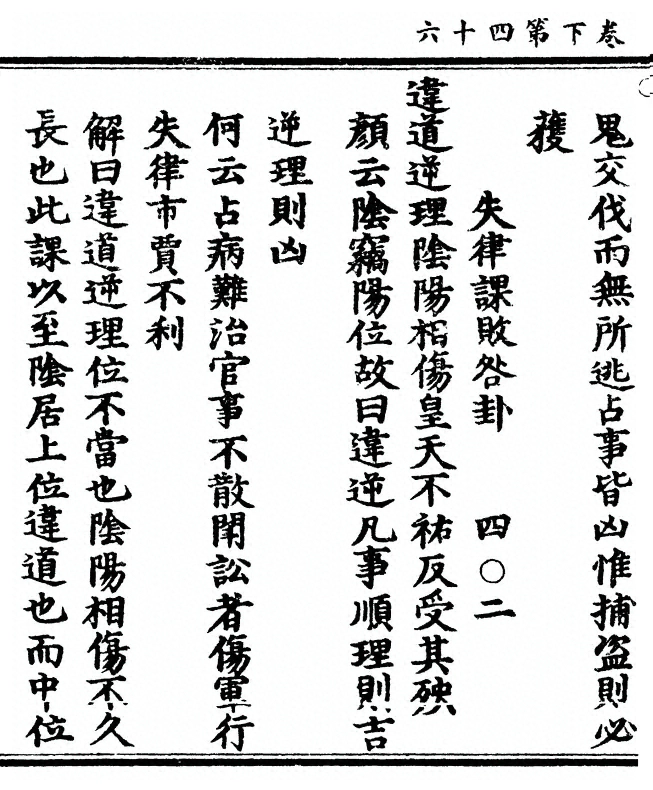 卷下第四十六
鬼交伐而無所逃占事皆凶惟捕盗則必
獲
失律課敗咎卦 四〇二
違道逆理陰陽相傷皇天不祐反受其殃
顏云陰竊陽位故曰違逆凡事順理則吉
逆理則凶
何云占病難治官事不散閗訟者傷軍行
失律市賈不利
解曰違道逆理位不當也陰陽相傷不久
長也此課以至陰居上位違道也而中位